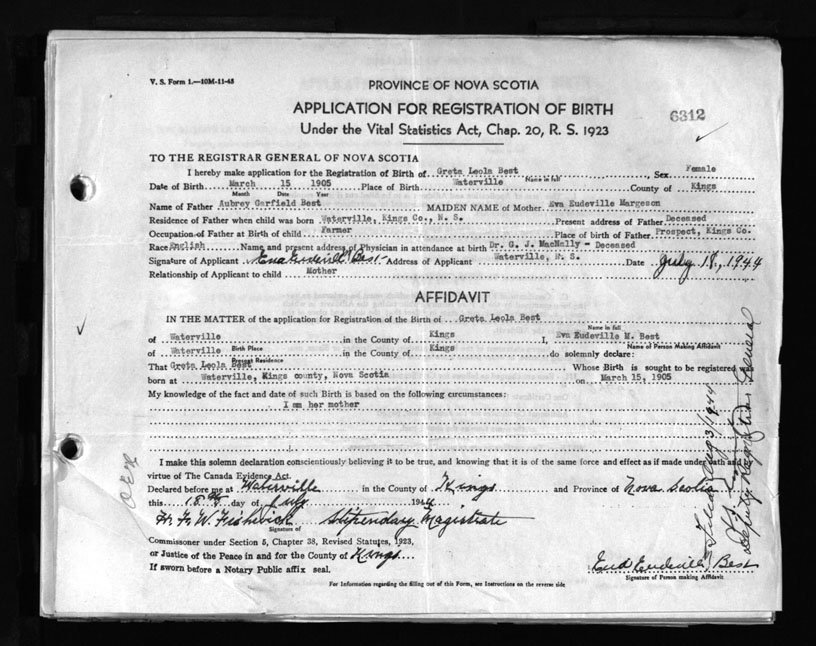 V. S. Form 1.—10M-11-43
PROVINCE OF NOVA SCOTIA
APPLICATION FOR REGISTRATION OF BIRTH
6312
Under the Vital Statistics Act, Chap. 20, R. S. 1923
TO THE REGISTRAR GENERAL OF NOVA SCOTIA
I hereby make application for the Registration of Birth of Greta Leola Best Sex Female
Name in full
Date of Birth March 15 1905 Place of Birth Waterville County of Kings
Month Date Year
Name of Father Aubrey Garfield Best MAIDEN NAME of Mother Eva Eudeville Margeson
Residence of Father when child was born Waterville, Kings Co., N. S. Present address of Father Deceased
Occupation of Father at Birth of child Farmer Place of birth of Father Prospect, Kings Co.
Race English Name and present address of Physician in attendance at birth Dr. G. J. MacNally - Deceased
Signature of Applicant Eva Eudevill Best Address of Applicant Waterville, N. S. Date July 18, 1944
Relationship of Applicant to child Mother
AFFIDAVIT
IN THE MATTER of the application for Registration of the Birth of Greta Leola Best
Name in full
of Waterville in the County of Kings I, Eva Eudeville M. Best
Birth Place Name of Person Making Affidavit
of Waterville in the County of Kings do solemnly declare:
Present Residence
That Greta Leola Best Whose Birth is sought to be registered was
born at Waterville, Kings county, Nova Scotia on March 15, 1905
My knowledge of the fact and date of such Birth is based on the following circumstances:
I am her mother
I make this solemn declaration conscientiously believing it to be true, and knowing that it is of the same force and effect as if made under oath and by
virtue of The Canada Evidence Act.
Declared before me at Waterville in the County of Kings and Province of Nova Scotia
this 18th day of July 1944
H. Fishwick Stipendary Magistrate
Signature of
Commissioner under Section 5, Chapter 38, Revised Statutes, 1923,
or Justice of the Peace in and for the County of Kings
If sworn before a Notary Public affix seal.
Eudevill Best
Signature of Person making Affidavit
For Information regarding the filling out of this Form, see Instructions on the reverse side.
Filed Aug 3/1944
Deputy Registrar General